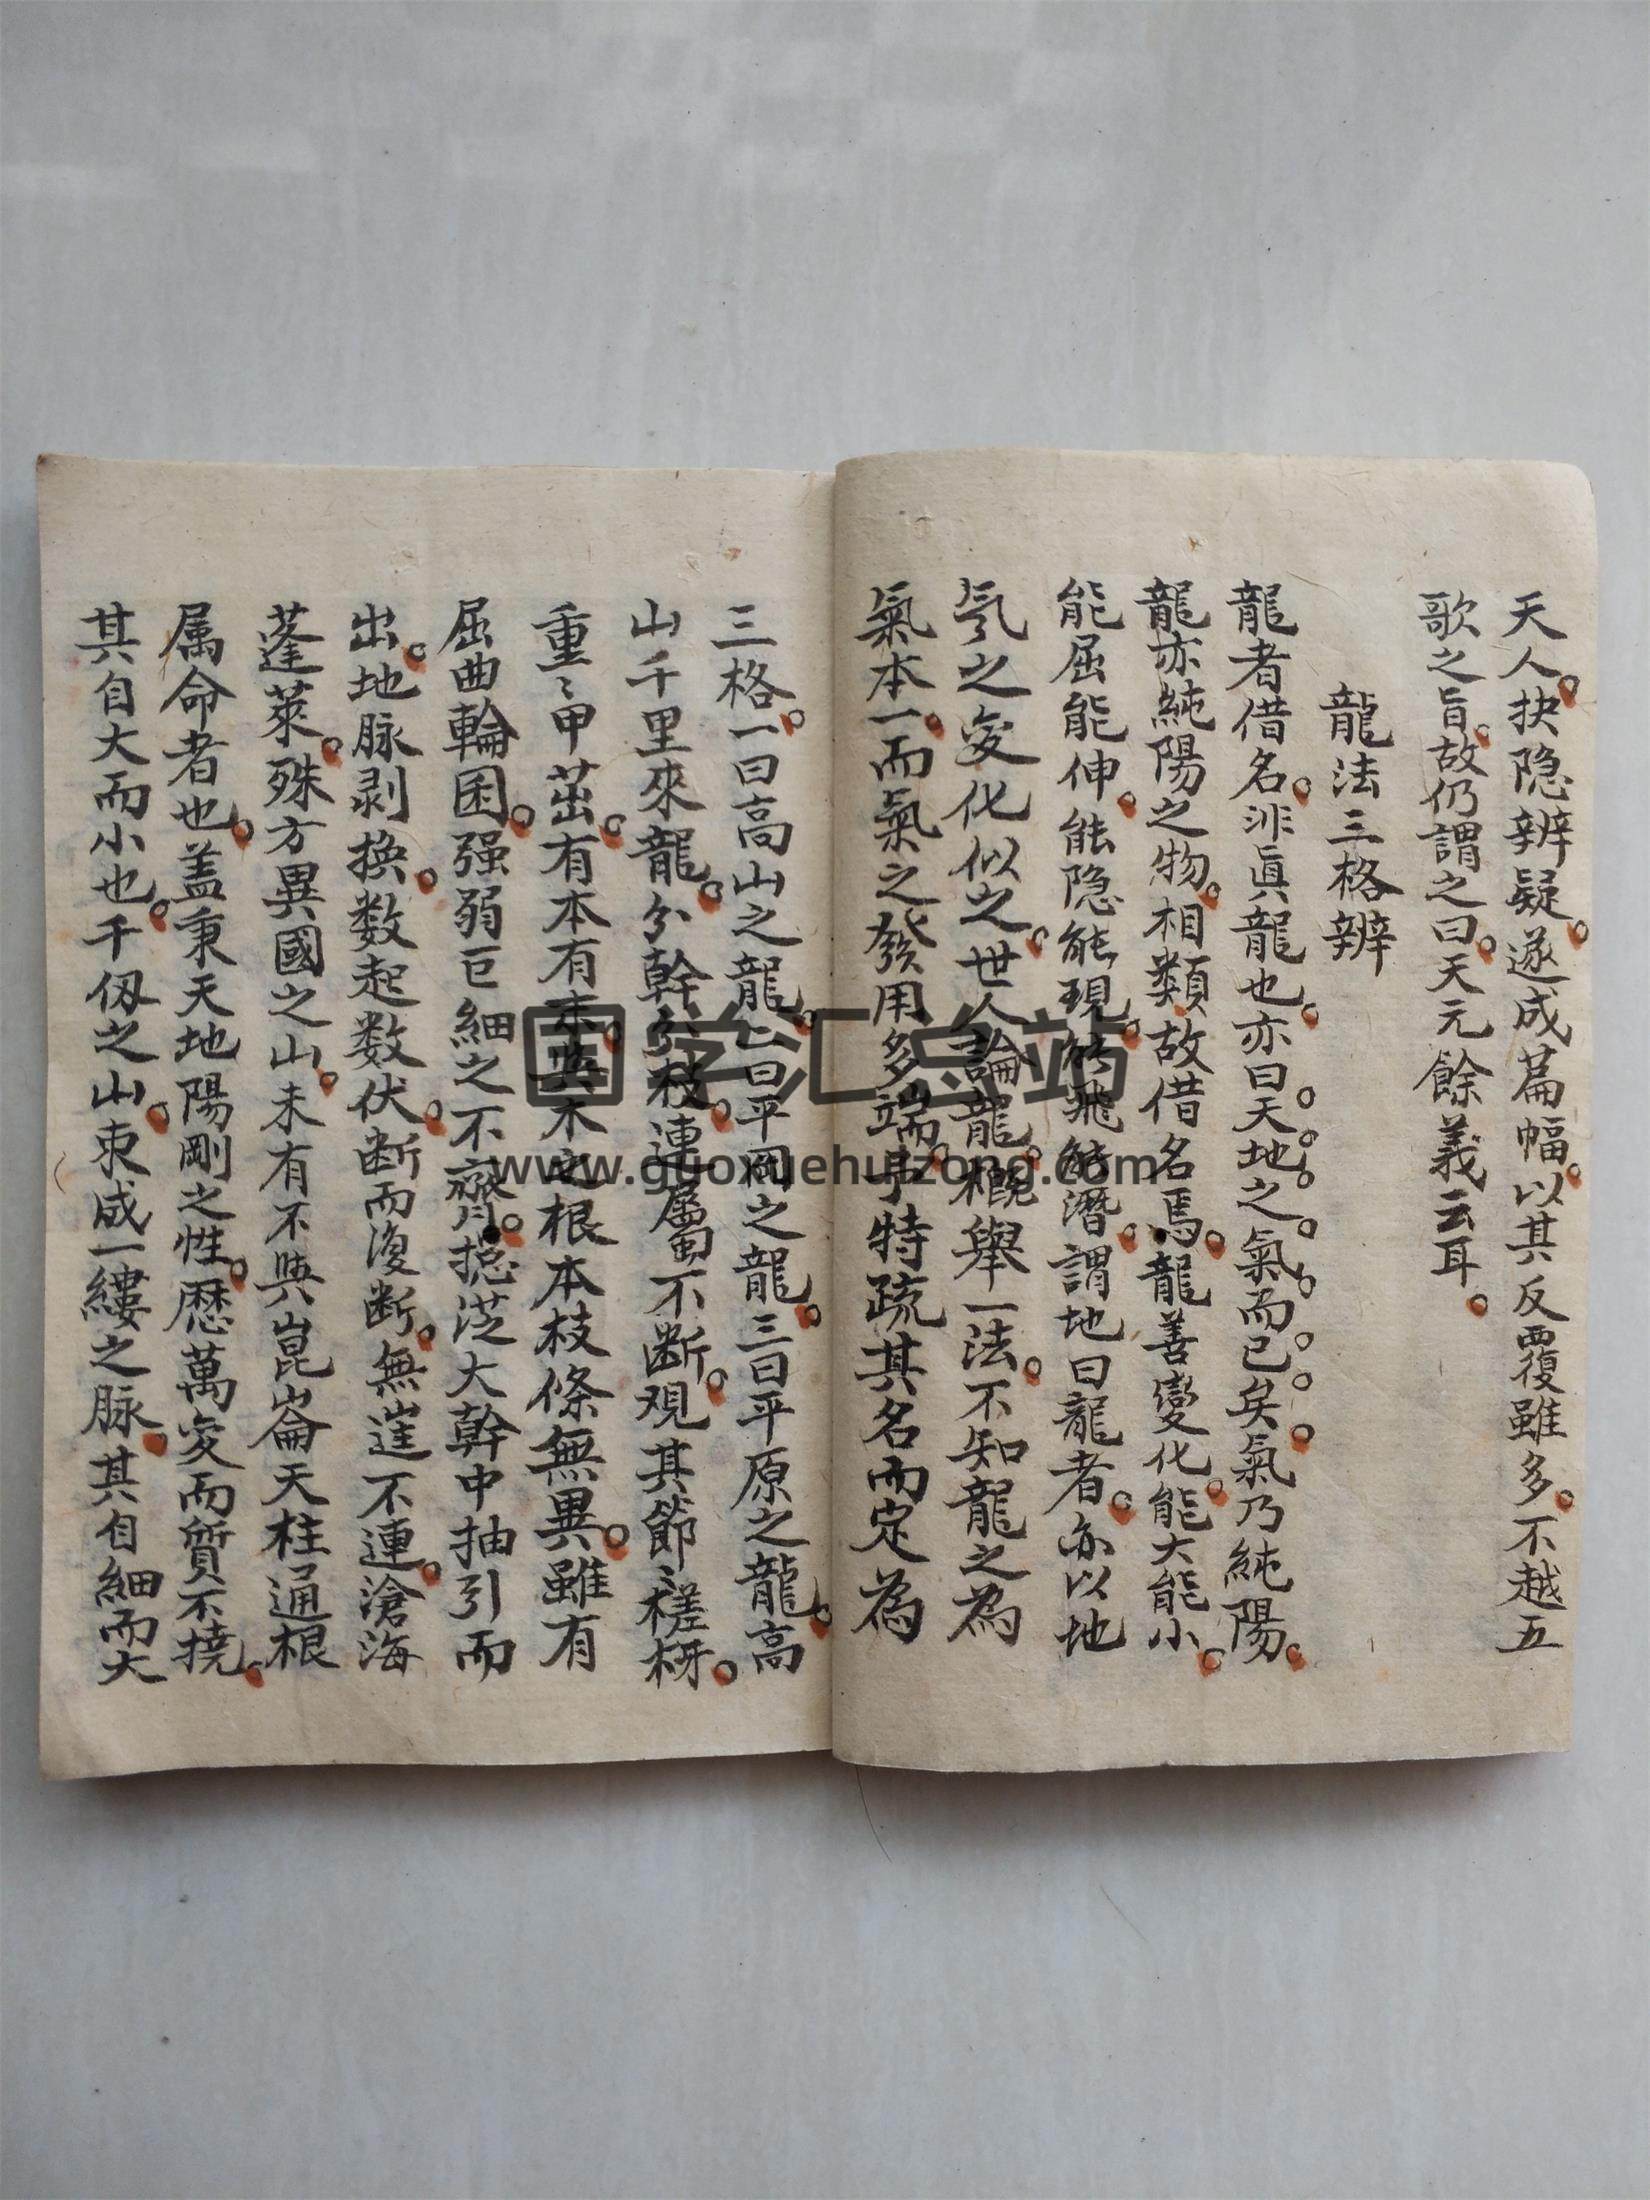 天人。抉隐辨疑。遂成篇幅。以其反覆雖多。不越五
歌之旨。故仍謂之曰。天元餘義云耳。
龍法三格辨
龍者借名。非眞龍也。亦曰。天地之氣而已矣。氣乃純陽。
龍亦純陽之物。相類故借名焉。龍善變化。能大能小。
能屈能伸。能隐能現。能飛能潛。謂地曰龍者。亦以地
氣之变化似之。世人論龍。概舉一法。不知龍之為
氣本一。而氣之發用多端。予特疏其名而定為
三格。一曰高山之龍。二曰平岡之龍。三曰平原之龍。高
山千里來龍。分幹分枝。連屬不断。观其節〻槎枒。
重〻甲茁。有本有末。與木之根本枝條無異。雖有
屈曲輪囷。强弱巨細之不齊。揔從大幹中抽引而
出。地脉剥换。数起数伏。断而復断。無崖不連。滄海
蓬萊。殊方異國之山。未有不與崑崙天柱通根
属命者也。盖秉天地陽剛之性。歷萬变而質不撓。
其自大而小也。千仭之山。束成一縷之脉。其自細而大
国学汇总站
www.guoxuehuizong.com